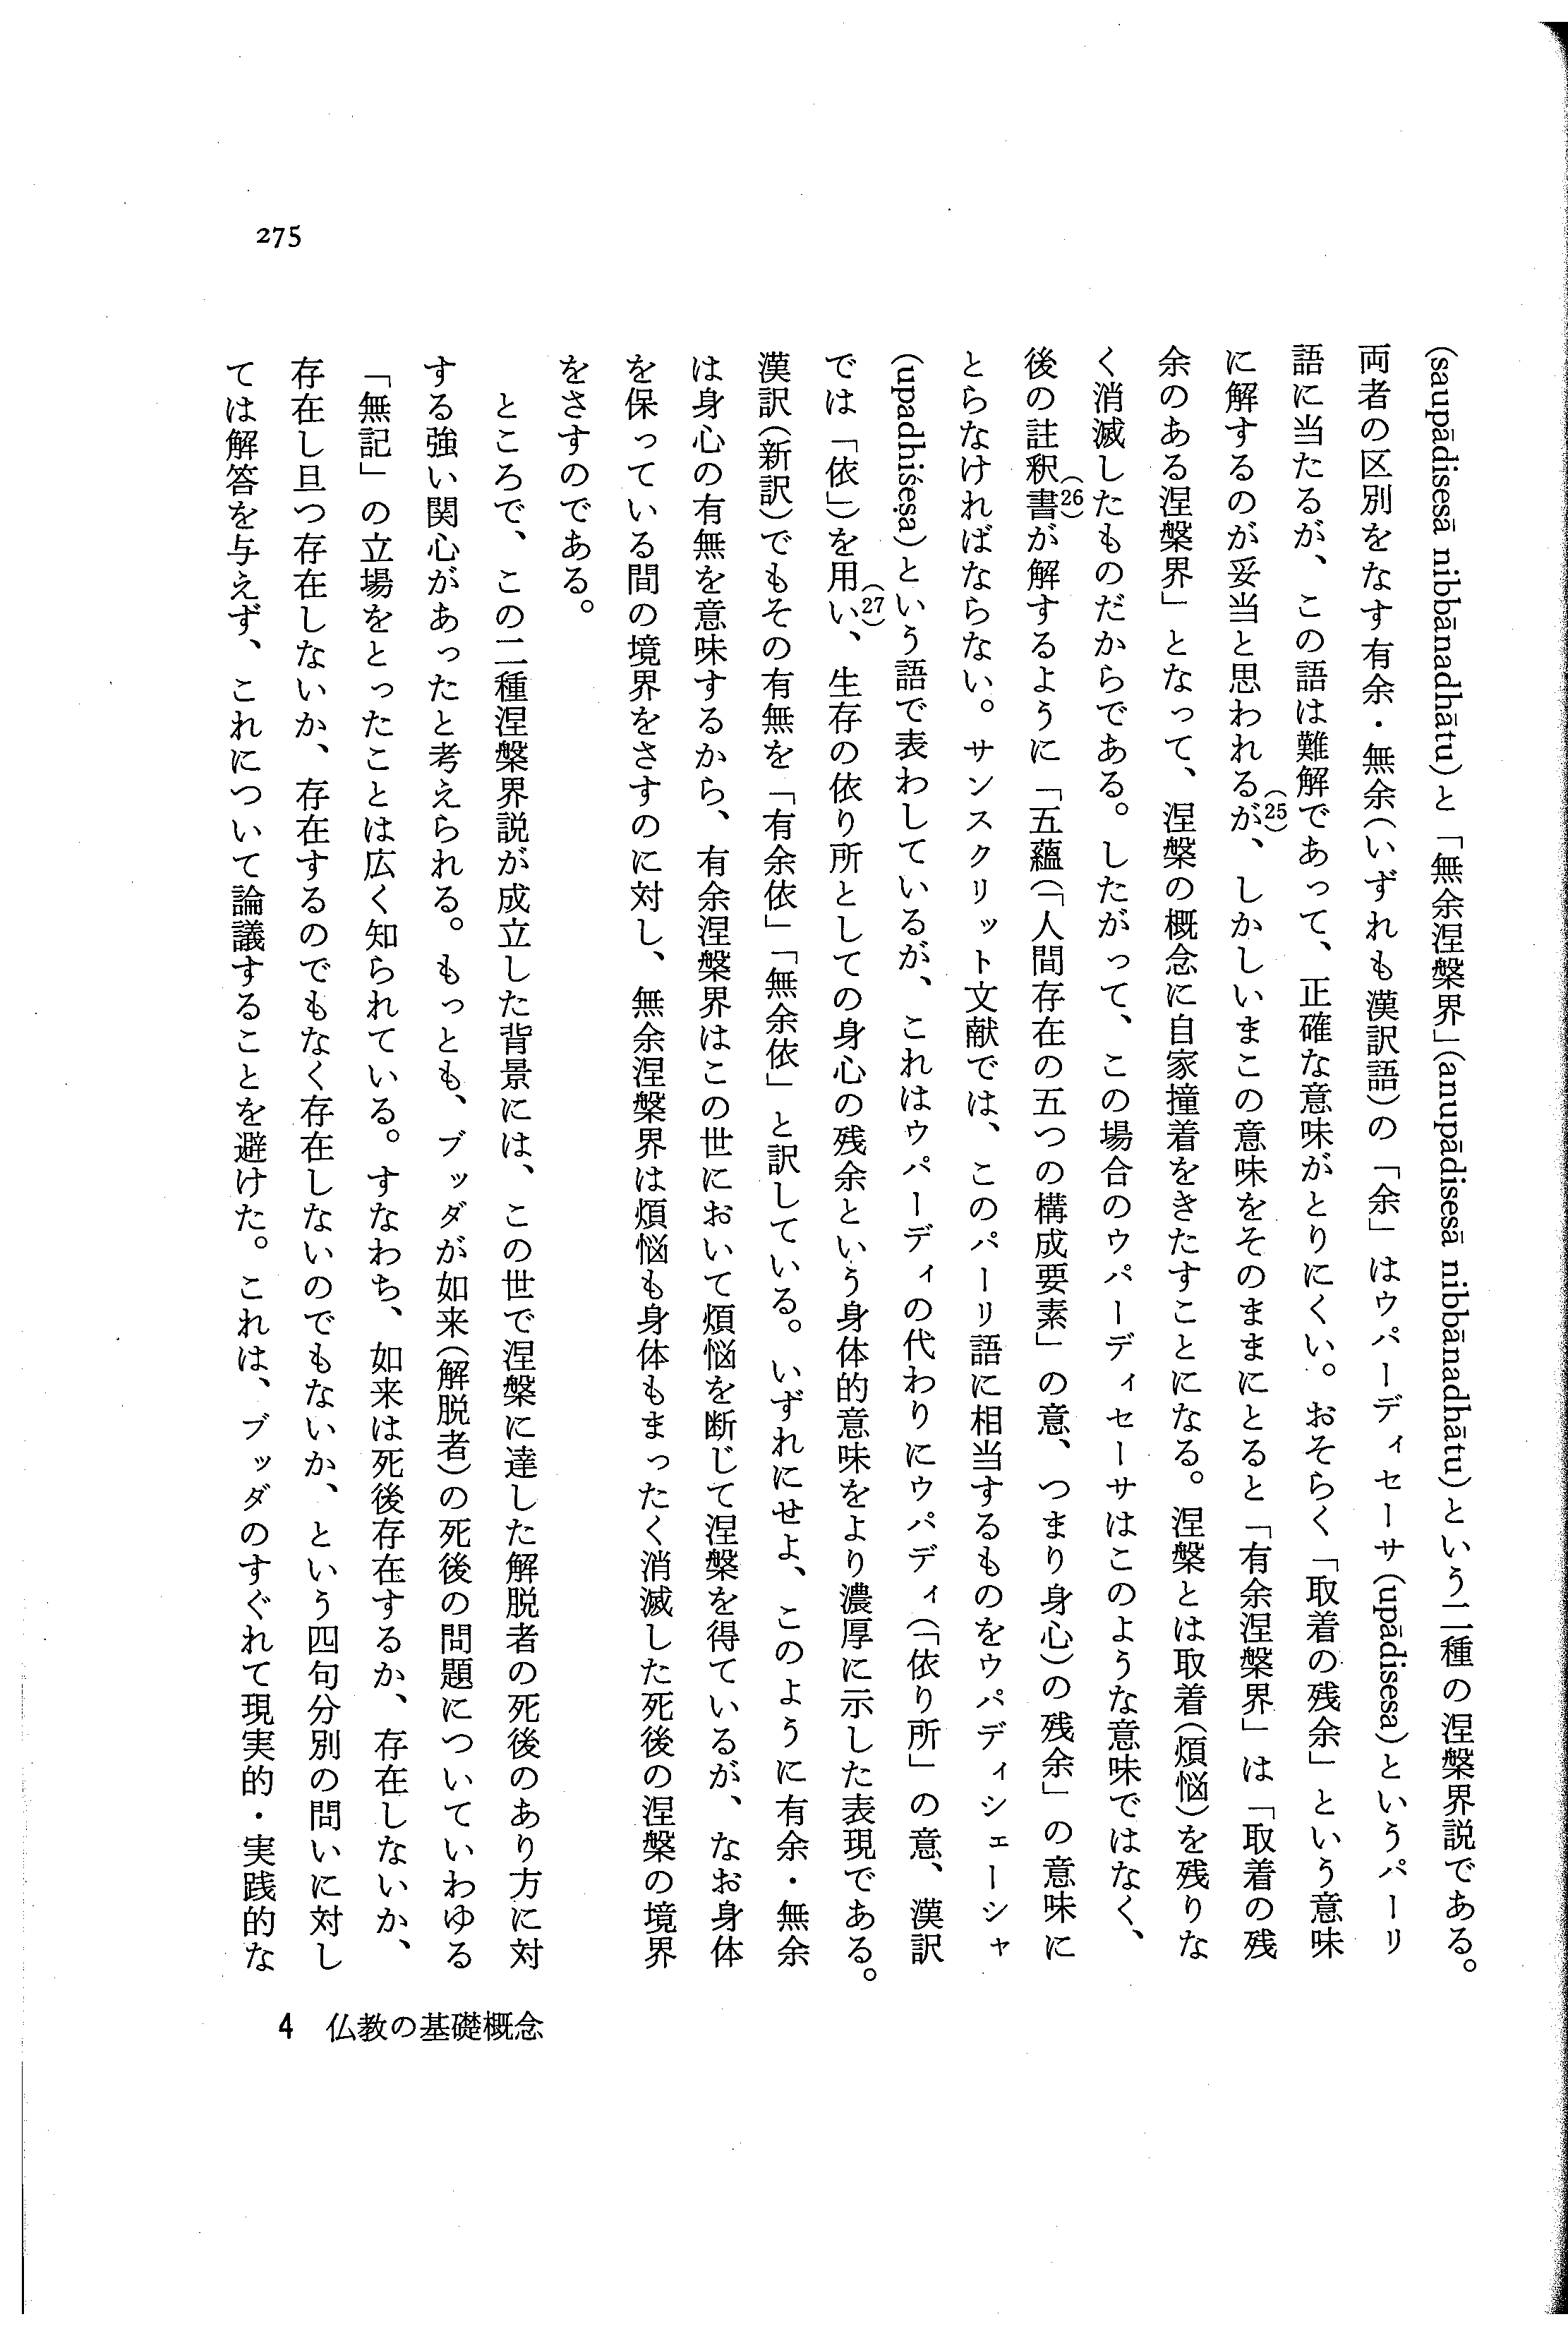 (saupādisesā nibbānadhātu)と「無余涅槃界」(anupādisesā nibbānadhātu)という二種の涅槃界説である。
両者の区別をなす有余・無余(いずれも漢訳語)の「余」はウパーディセーサ(upādisesa)というパーリ
語に当たるが、この語は難解であって、正確な意味がとりにくい。おそらく「取着の残余」という意味
に解するのが妥当と思われるが(25)、しかしいまこの意味をそのままにとると「有余涅槃界」は「取着の残
余のある涅槃界」となって、涅槃の概念に自家撞着をきたすことになる。涅槃とは取着(煩悩)を残りな
く消滅したものだからである。したがって、この場合のウパーディセーサはこのような意味ではなく、
後の註釈書(26)が解するように「五蘊(「人間存在の五つの構成要素」の意、つまり身心)の残余」の意味に
とらなければならない。サンスクリット文献では、このパーリ語に相当するものをウパディシェーシャ
(upadhiśeṣa)という語で表わしているが、これはウパーディの代わりにウパディ(「依り所」の意、漢訳
では「依」)を用い(27)、生存の依り所としての身心の残余という身体的意味をより濃厚に示した表現である。
漢訳(新訳)でもその有無を「有余依」「無余依」と訳している。いずれにせよ、このように有余・無余
は身心の有無を意味するから、有余涅槃界はこの世において煩悩を断じて涅槃を得ているが、なお身体
を保っている間の境界をさすのに対し、無余涅槃界は煩悩も身体もまったく消滅した死後の涅槃の境界
をさすのである。
ところで、この二種涅槃界説が成立した背景には、この世で涅槃に達した解脱者の死後のあり方に対
する強い関心があったと考えられる。もっとも、ブッダが如来(解脱者)の死後の問題についていわゆる
「無記」の立場をとったことは広く知られている。すなわち、如来は死後存在するか、存在しないか、
存在し且つ存在しないか、存在するのでもなく存在しないのでもないか、という四句分別の問いに対し
ては解答を与えず、これについて論議することを避けた。これは、ブッダのすぐれて現実的・実践的な
275
4 仏教の基礎概念